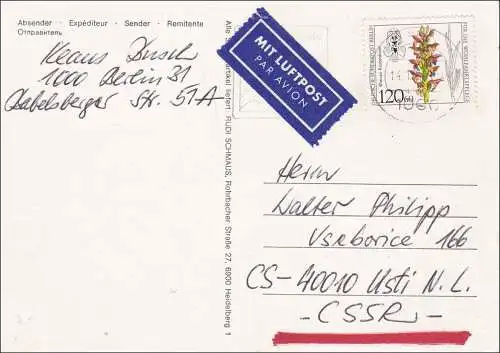 Absender · Expéditeur · Sender · Remitente
Отправитель
Klaus Busch
1000 Berlin 31
Babelsberger Str. 51A
MIT LUFTPOST
PAR AVION
RUDI SCHMAUS, Rohrbacher Straße 27, 6900 Heidelberg 1
120+60
Herrn
Walter Philipp
Vseborice 166
CS-40010 Usti N. L.
- CSSR -